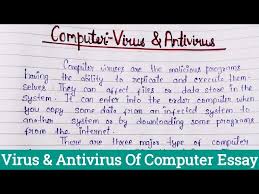 Computer-Virus & Antivirus
Computer viruses are the malicious programs
having the ability to replicate and execute them-
selves. They can affect files or data store in the
system. It can enter into the order computer when
you copy some data from an infected system to
another system or by downloading some programs
from the internet.
There are three major type of computer
Virus & Antivirus Of Computer Essay